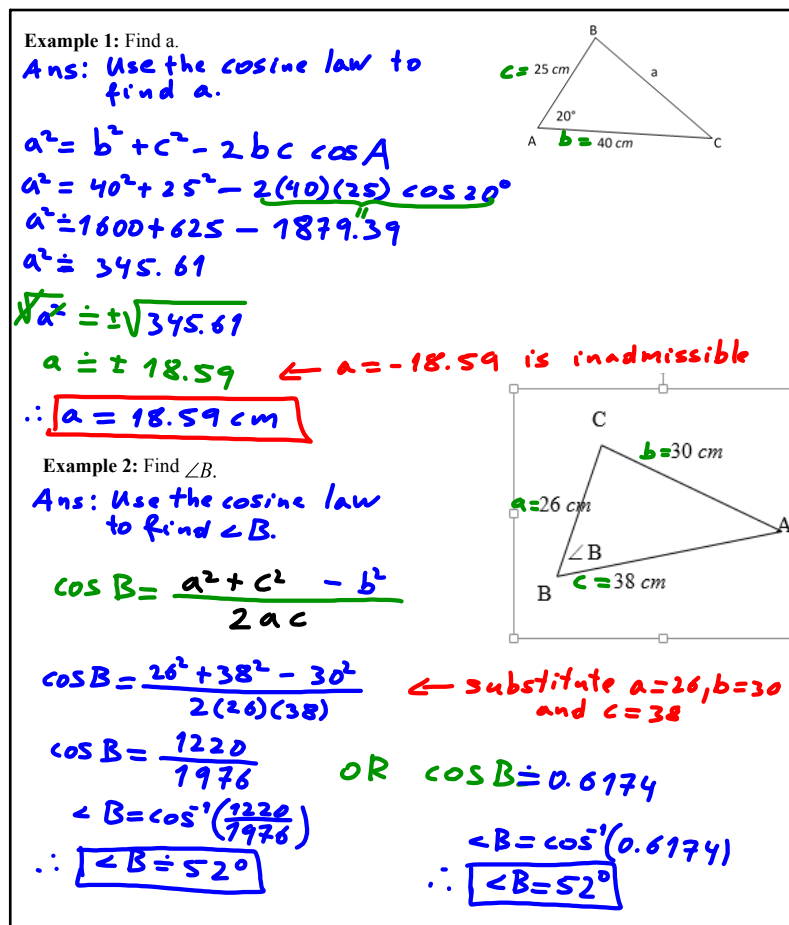 Example 1: Find a.
Ans: Use the cosine law to
find a.
B
c= 25 cm
a
20°
A
b= 40 cm
C
a² = b² + c² - 2bc cosA
a² = 40² + 25² - 2(40)(25) cos20°
a² ≐ 1600 + 625 - 1879.39
a² ≐ 345.61
√a² ≐ ±√345.61
a ≐ ± 18.59 ← a = -18.59 is inadmissible
∴ a = 18.59 cm
Example 2: Find ∠B.
Ans: Use the cosine law
to find ∠B.
C
b=30 cm
a=26 cm
A
∠B
B
c=38 cm
cos B = (a² + c² - b²)/(2ac)
cosB = (26² + 38² - 30²)/(2(26)(38)) ← substitute a=26, b=30
and c=38
cosB = 1220/1976 OR cosB ≐ 0.6174
∠B = cos⁻¹(1220/1976)
∠B = cos⁻¹(0.6174)
∴ ∠B ≐ 52°
∴ ∠B = 52°